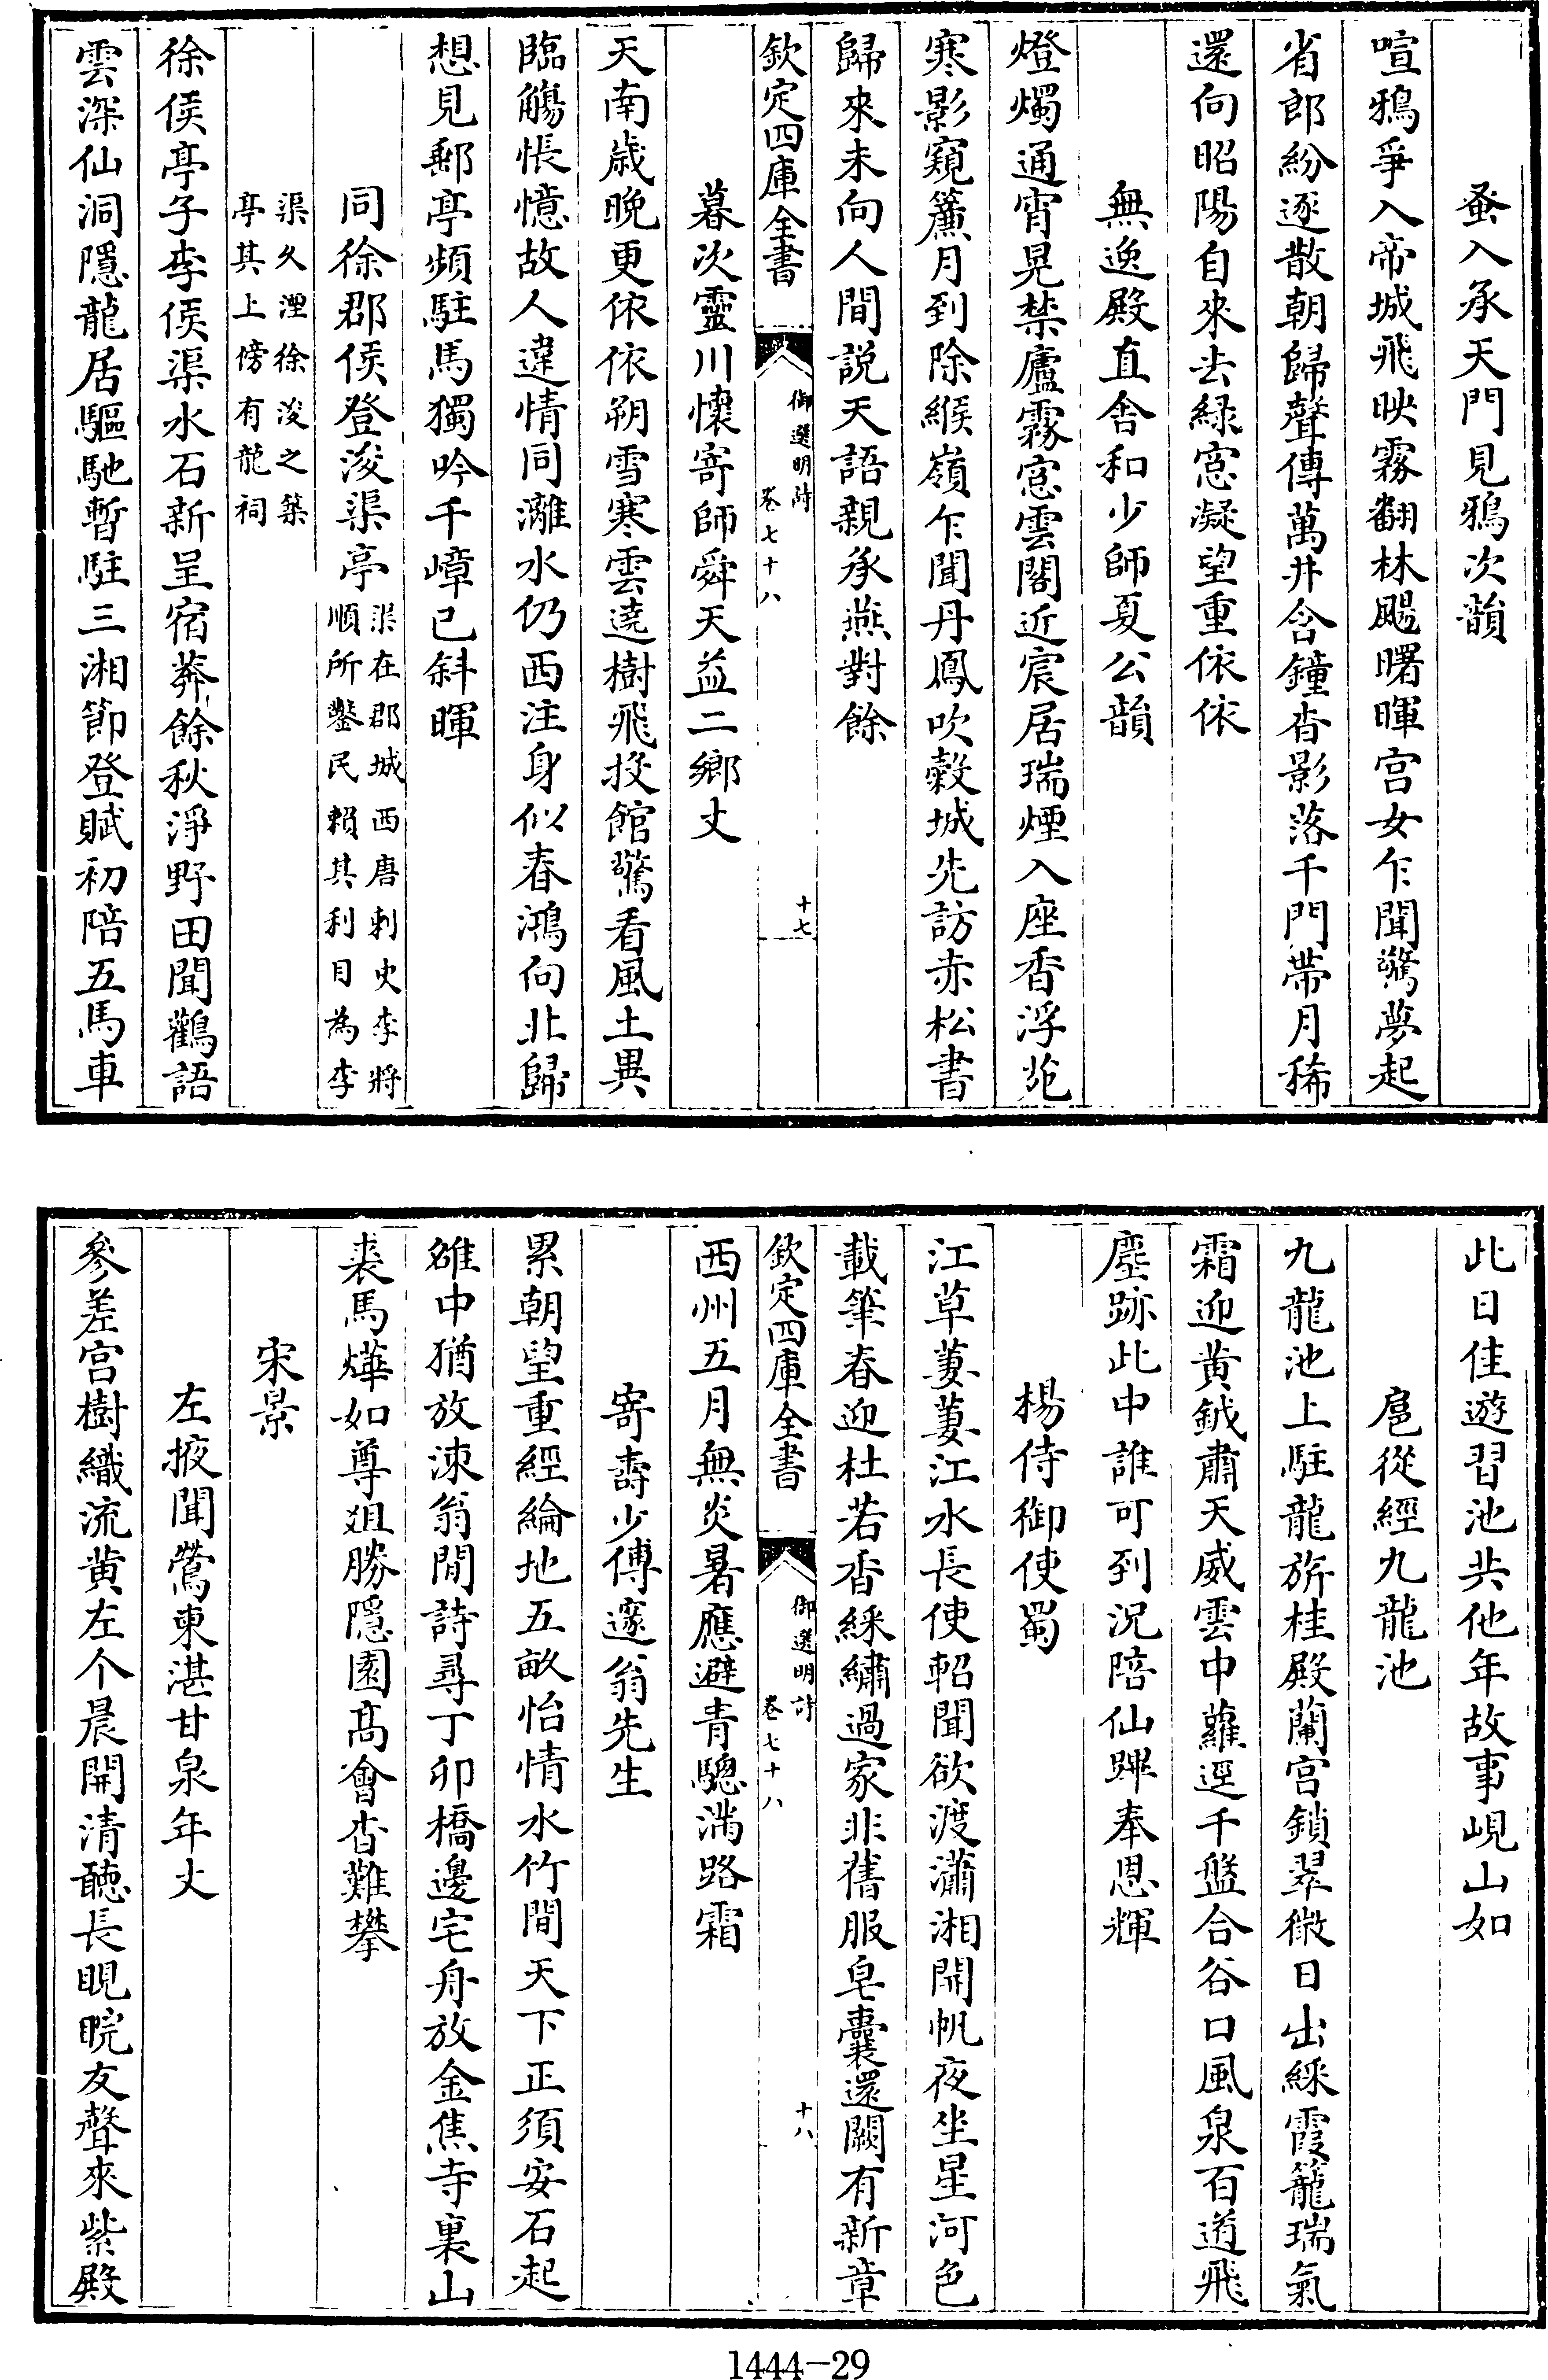 蚤入承天門見鴉次韻
喧鴉爭入帝城飛映霧翻林颺曙暉宫女乍聞驚夢起
省郎紛逐散朝歸聲傳萬井含鐘杳影落千門帶月稀
還向昭陽自來去緑窓凝望重依依
無逸殿直舍和少師夏公韻
燈燭通宵晃禁廬霧窓雲閣近宸居瑞煙入座香浮苑
寒影窺簾月到除緱嶺乍聞丹鳳吹榖城先訪赤松書
歸來未向人間説天語親承燕對餘
欽定四庫全書
御選明詩
卷七十八
十七
暮次靈川懷寄師舜天益二鄉丈
天南歳晚更依依朔雪寒雲遶樹飛投館驚看風土異
臨觴悵憶故人違情同灕水仍西注身似春鴻向北歸
想見郵亭頻駐馬獨吟千嶂已斜暉
同徐郡侯登浚渠亭
渠在郡城西唐刺史李將
順所鑿民賴其利目為李
渠久湮徐浚之築
亭其上傍有龍祠
徐侯亭子李侯渠水石新呈宿莽餘秋淨野田聞鸛語
雲深仙洞隱龍居驅馳暫駐三湘節登賦初陪五馬車
此日佳遊習池共他年故事峴山如
扈從經九龍池
九龍池上駐龍旂桂殿蘭宫鎖翠微日出綵霞籠瑞氣
霜迎黄鉞肅天威雲中蘿逕千盤合谷口風泉百道飛
塵跡此中誰可到況陪仙蹕奉恩輝
楊侍御使蜀
江草萋萋江水長使軺聞欲渡瀟湘開帆夜坐星河色
載筆春迎杜若香綵繡過家非舊服皂囊還闕有新章
欽定四庫全書
御選明詩
卷七十八
十八
西州五月無炎暑應避青驄滿路霜
寄壽少傅邃翁先生
累朝望重經綸地五畝怡情水竹間天下正須安石起
雒中猶放涑翁閒詩尋丁卯橋邊宅舟放金焦寺裏山
裘馬燁如尊爼勝隱園髙會杳難攀
宋景
左掖聞鶯東湛甘泉年丈
參差宫樹織流黄左个晨開清聽長睍睆友聲來紫殿
1444-29